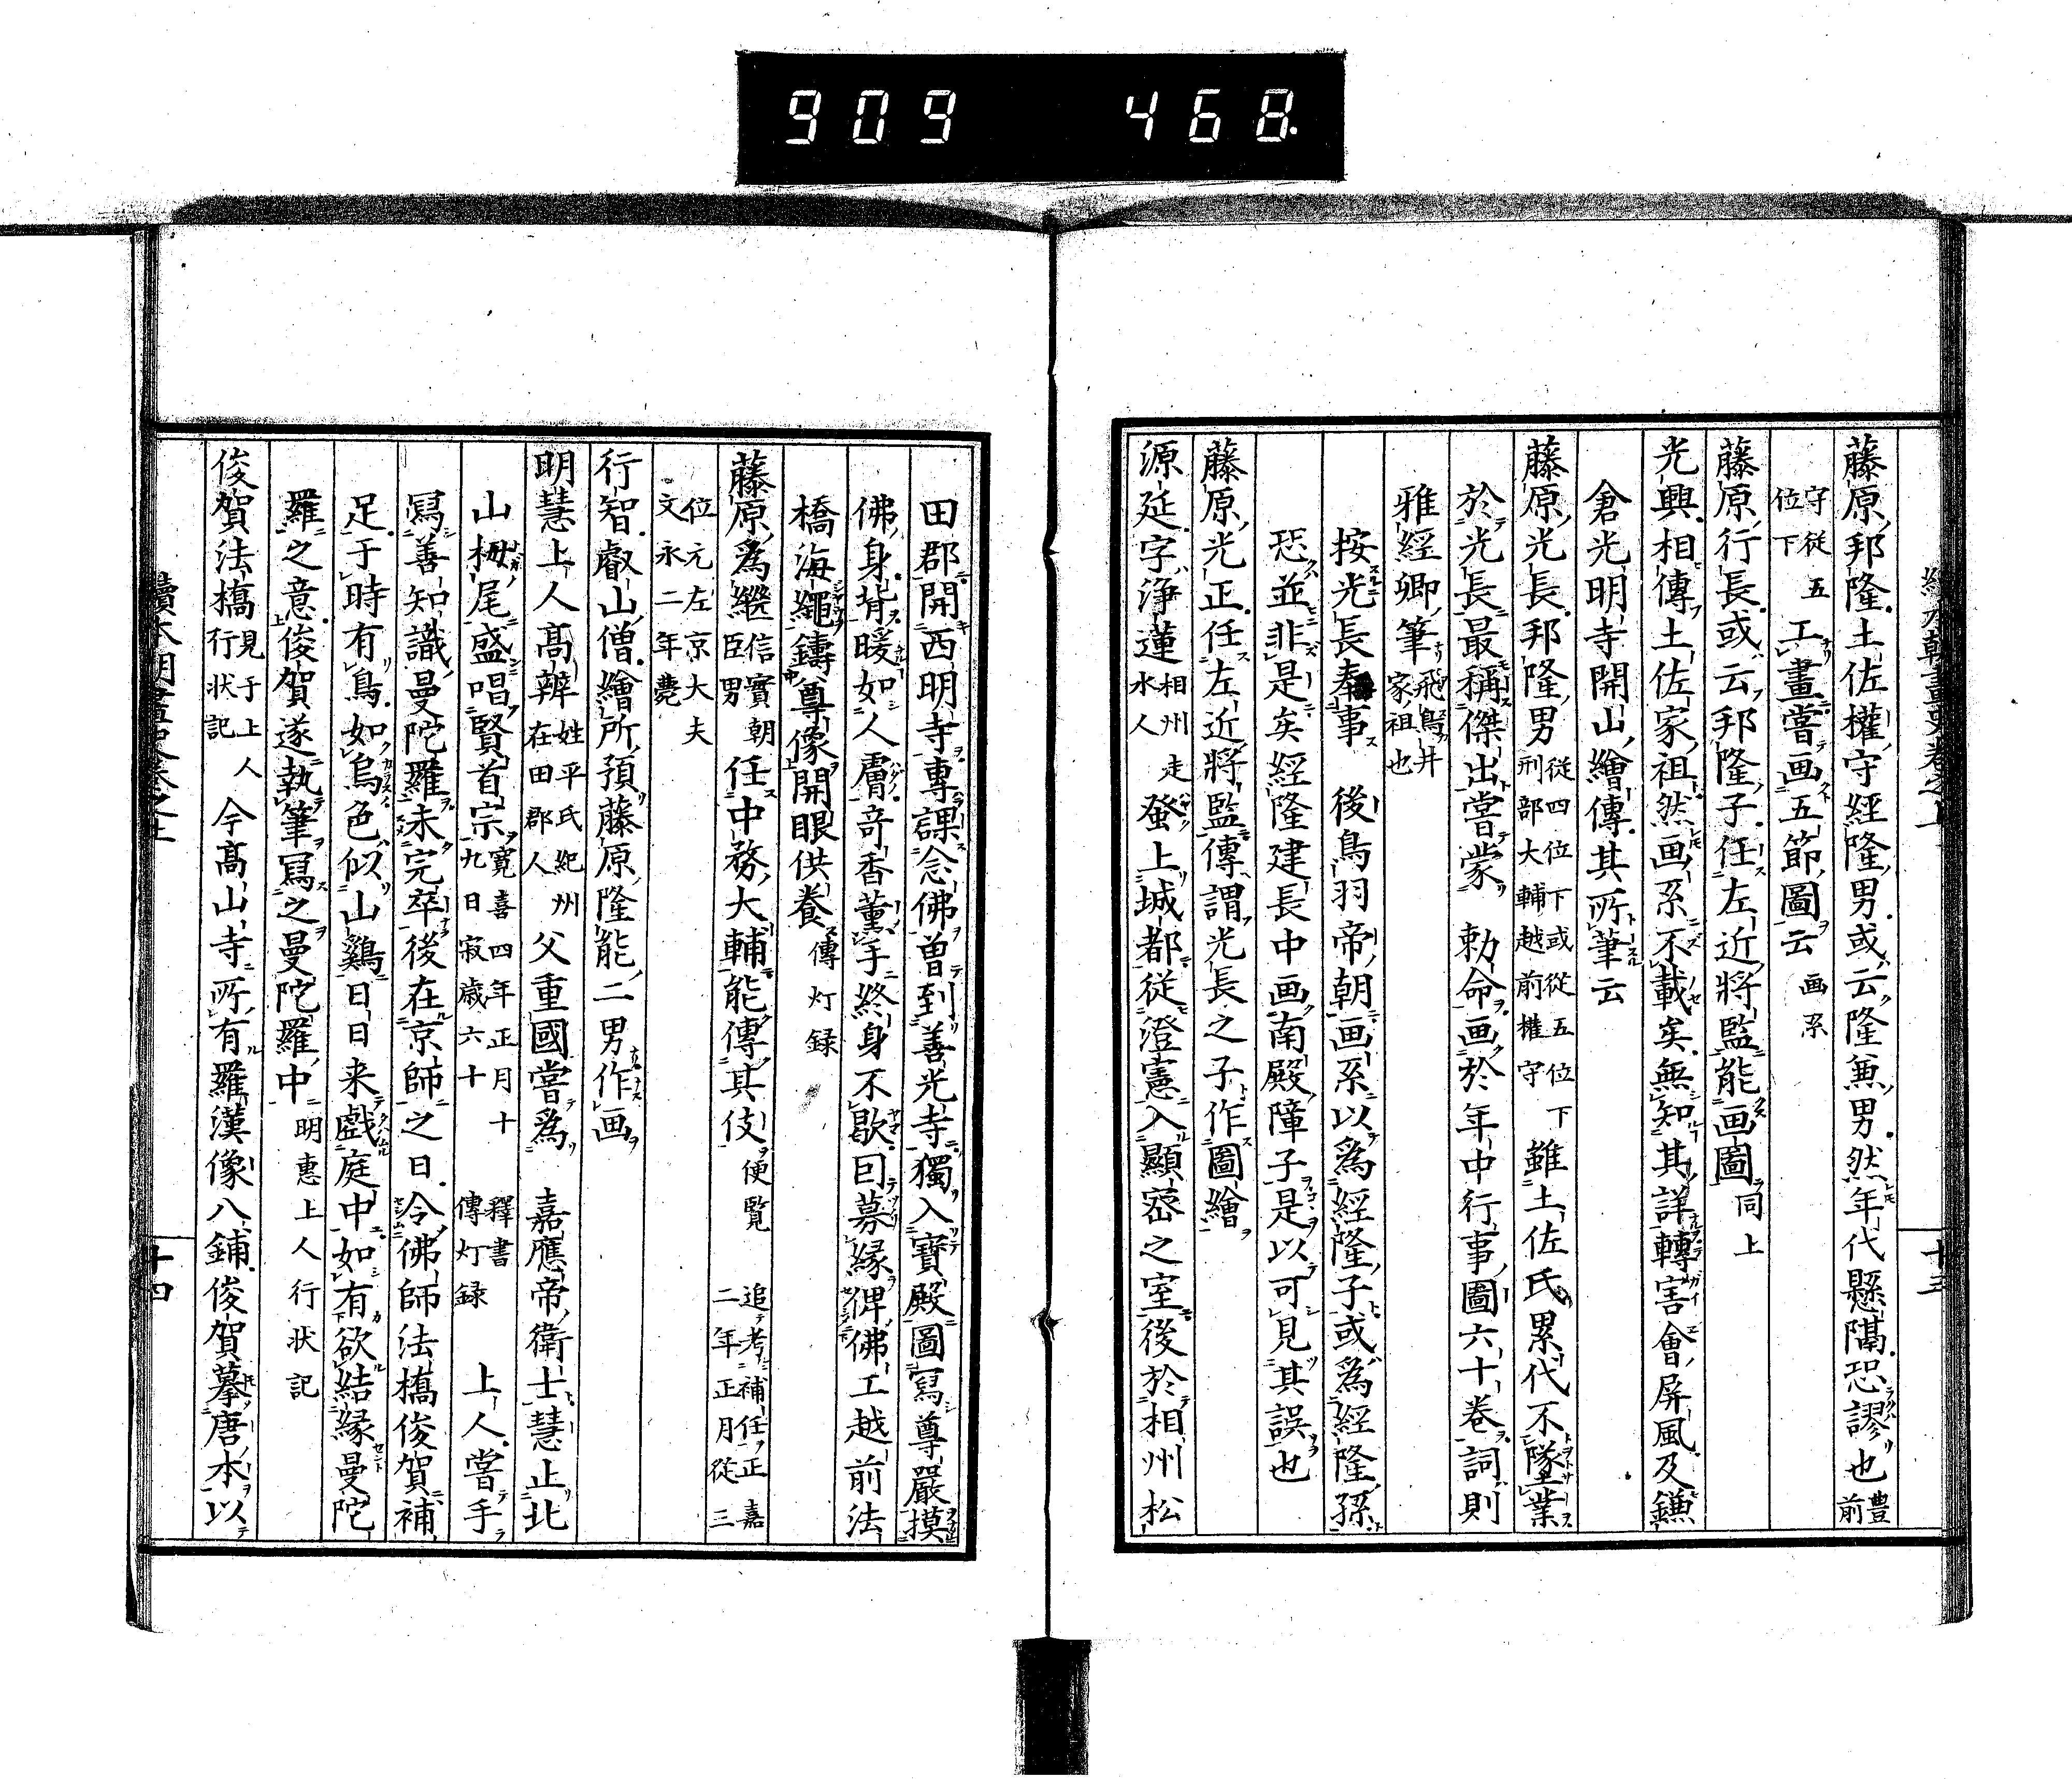 909 468.
藤原邦隆土佐權守経隆男或云隆兼男然年代懸隔恐謬也豊前
守從五位下工畫嘗画五節圖云画系
藤原行長或云邦隆子任左近將監能画圖同上
光興相傳土佐家祖然画系不載矣無知其詳轉害會屏風及鎌
倉光明寺開山繪傳其所筆云
藤原光長邦隆男從四位下或從五位下刑部大輔越前權守雖土佐氏累代不墜業
於光長最稱傑出嘗蒙勅命画於年中行事圖六十卷詞則
雅經卿筆飛鳥井家祖也
按光長奉事後鳥羽帝朝画系以爲經隆子或爲經隆孫
恐並非是矣經隆建長中画南殿障子是以可見其誤也
藤原光正任左近將監傳謂光長之子作圖繪
源延字淨蓮相州走水人發上城都從澄憲入顯密之室後於相州松
田郡開西明寺專課念佛曽到善光寺獨入寶殿圖寫尊嚴摸
佛身背暖如人膚奇香薫手終身不歇囙募縁俾佛工越前法
橋海繩鑄尊像開眼供養傳灯録
藤原爲繼信實朝臣男任中務大輔能傳其伎便覧追考補任正嘉二年正月從三
位元左京大夫文永二年薨
行智叡山僧繪所預藤原隆能二男作画
明慧上人髙辨姓平氏紀州在田郡人父重國嘗爲嘉應帝衛士慧止北
山栂尾盛唱賢首宗寛喜四年正月十九日寂歳六十釋書傳灯録上人嘗手
寫善知識曼陀羅未完卒後在京師之日令佛師法橋俊賀補
足于時有鳥如烏色似山鷄日日来戲庭中如有欲結縁曼陀
羅之意俊賀遂執筆寫之曼陀羅中明惠上人行状記
俊賀法橋見于上人行状記今髙山寺所有羅漢像八鋪俊賀摹唐本以
十四